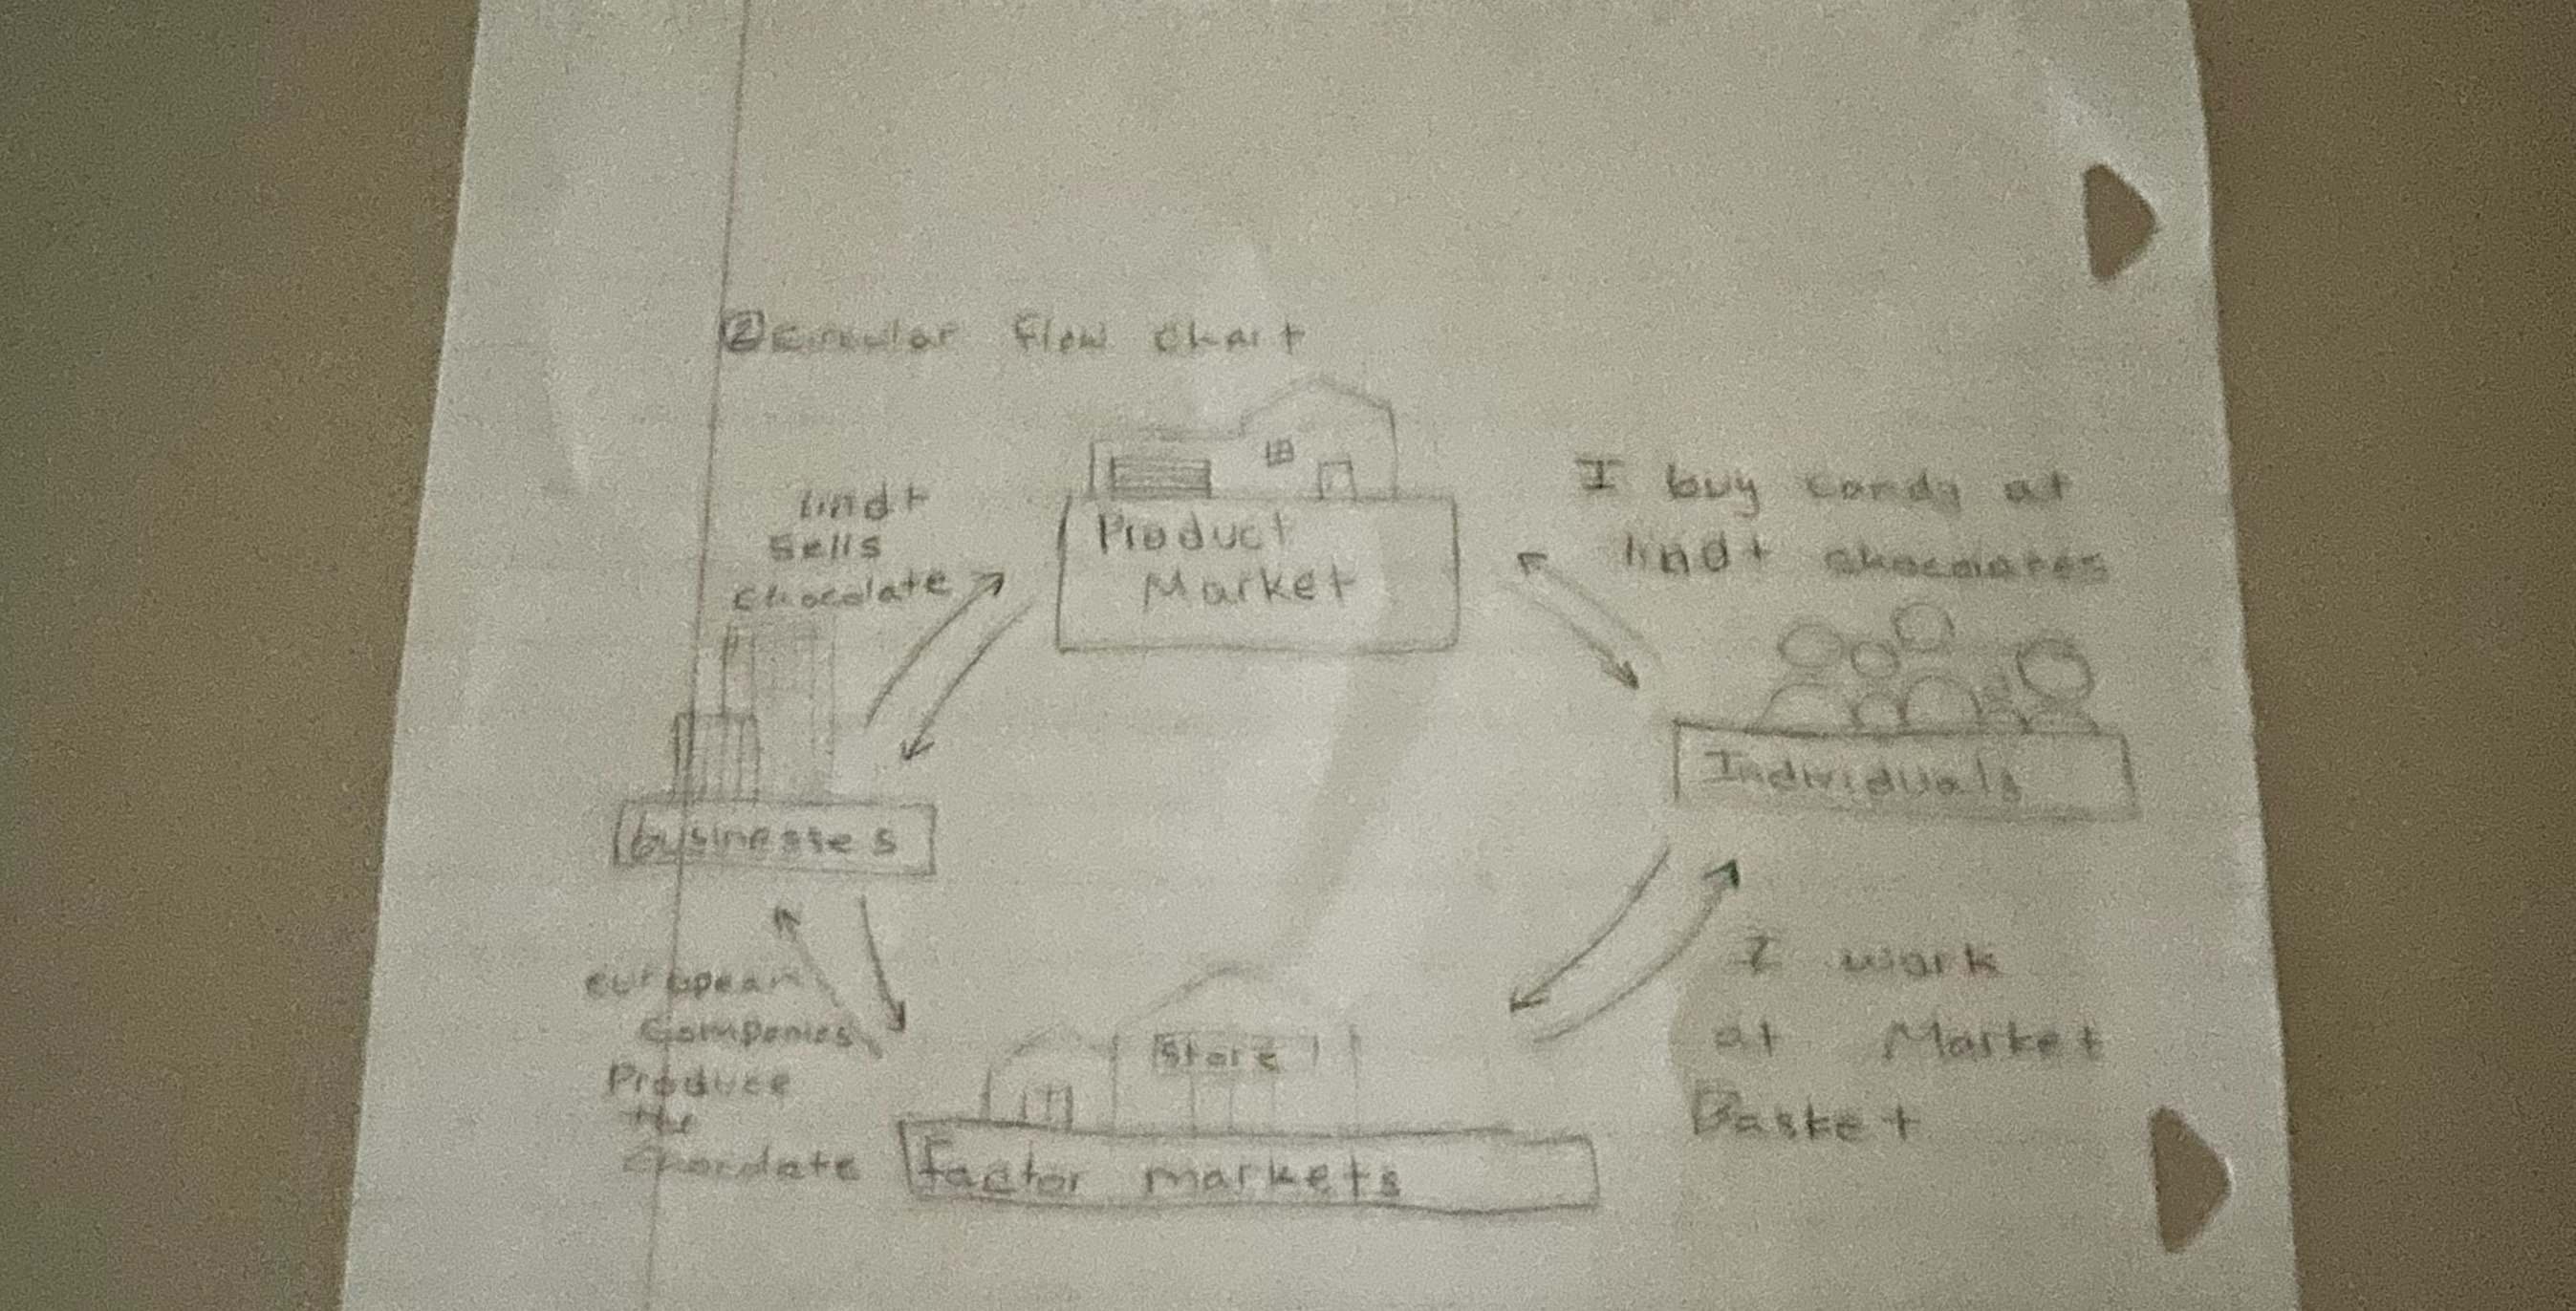 2 Circular Flow Chart
lindt
Sells
chocolate
Product
Market
I buy candy at
lindt chocolates
businesses
Individuals
european
Companies
Produce
the
Chocolate
Store
factor markets
I work
at Market
Basket